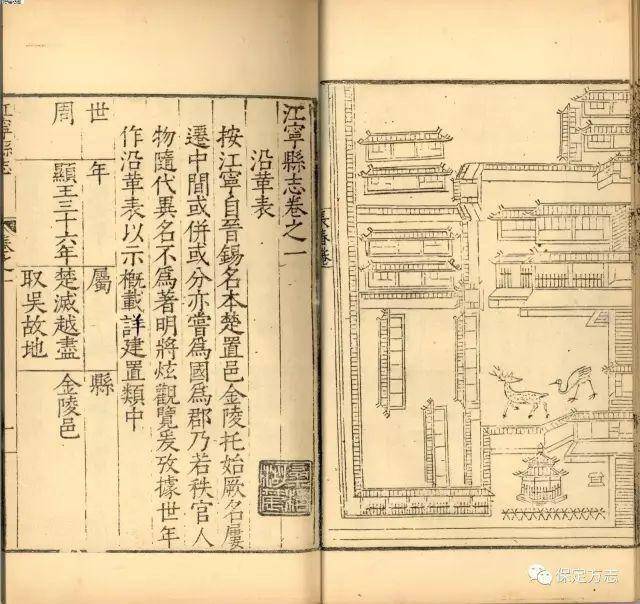 江寧縣志卷之一
沿革表
按江寧自晉錫名本楚置邑金陵托始厥名屢
遷中間或併或分亦嘗爲國爲郡乃若秩官人
物隨代異名不爲著明將炫觀覽爰攷據世年
作沿革表以示概載詳建置類中
世 年 屬 縣
周 顯王三十六年 楚滅越盡 金陵邑
取吳故地
江寧縣志
保定方志